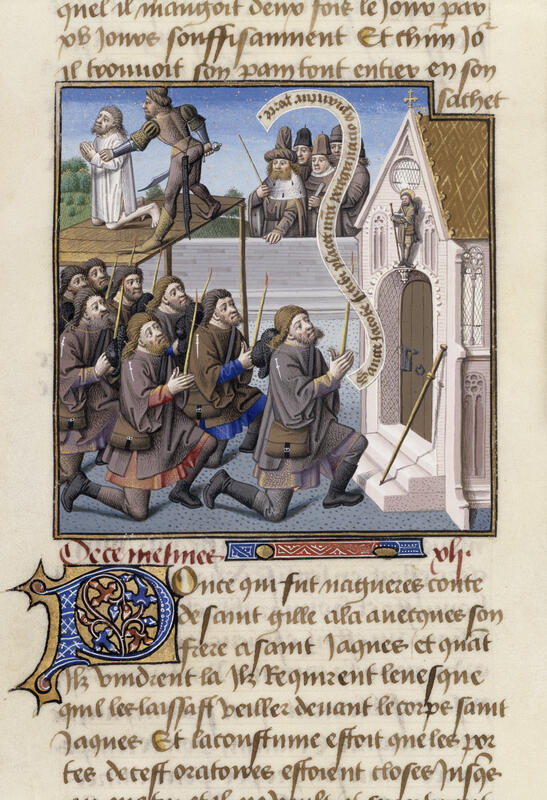 quel il mangoit deux fois le Jour par
xb Jours souffisanment Et chūn Jor
il trouuoit son pain tout entier en son
sachet
De ce mesmes xlj.
Ponce qui fut nagueres conte
de saint gille ala auecques son
frere a saint Jaques et quāt
Ilz vindrent la Ilz Requirent leuesque
quil les laissast veiller deuant le corps saint
Jaques Et la coustume estoit que les por
tes de cest oratoires estoient closes Jusqs